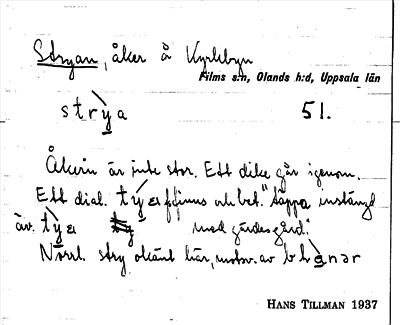 Stryan, åker å Kyrkbyn
Films s:n, Olands h:d, Uppsala län
strỳa 51.
Åkern är inte stor. Ett dike går igenom.
Ett dial. týa finns och bet. "täppa instängd
äv. tỳa med gärdesgård."
Norrl. stry okänt här, motsv. av blånər
HANS TILLMAN 1937